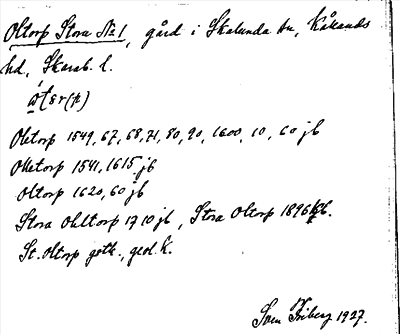 Oltorp Stora No 1, gård i Skalunda sn, Kållands
hd, Skarab. l.
Oletorp 1549, 67, 68, 71, 80, 90, 1600, 10, 60 jb
Olletorp 1541, 1615 jb
Oltorp 1620, 60 jb
Stora Ohltorp 1710 jb, Stora Oltorp 1896 jb.
St. Oltorp gstk., geol. k.
Sven Friberg 1927.